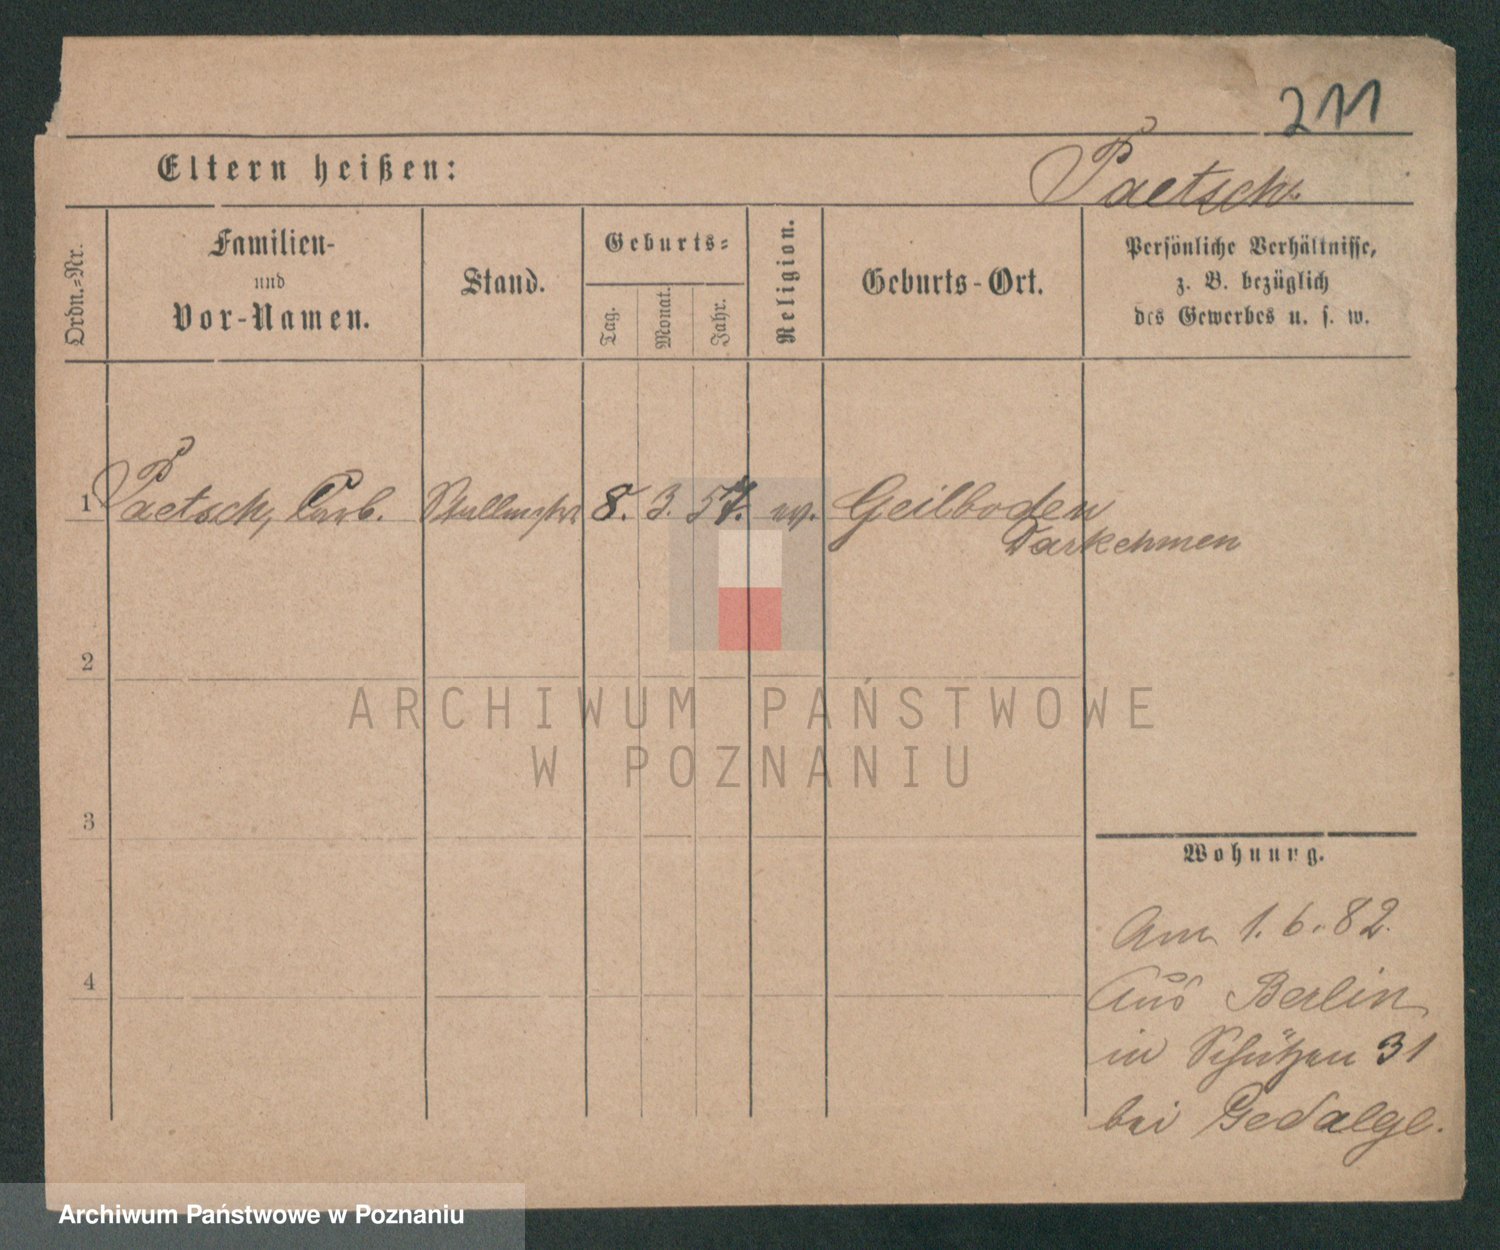 211
Eltern heißen: Paetsch.
Ordn.-Nr.
Familien-
und
Vor-Namen.
Stand.
Geburts-
Tag. Monat. Jahr.
Religion.
Geburts-Ort.
Persönliche Verhältnisse,
z. B. bezüglich
des Gewerbes u. s. w.
1 Paetsch, Carl. 8. 3. 57. ev. Geilboden
Darkehmen
2
ARCHIWUM PAŃSTWOWE
W POZNANIU
3
Wohnung.
Am 1. 6. 82.
Aus Berlin
4
in Schützen 31
bei
Archiwum Państwowe w Poznaniu